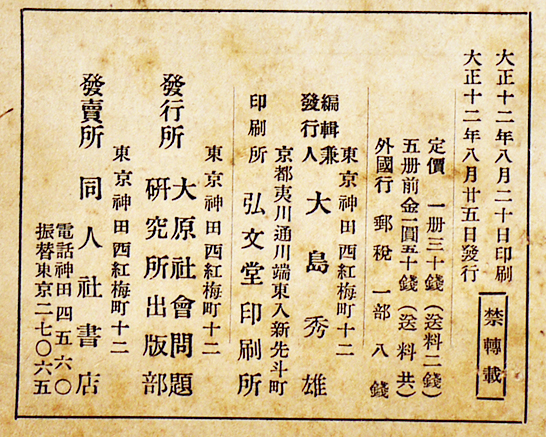 大正十二年八月二十日印刷
大正十二年八月廿五日發行
禁轉載
定價　一册三十錢（送料二錢）
五册前金一圓五十錢（送料共）
外國行　郵稅　一部八錢
東京神田西紅梅町十二
編輯兼發行人　大島秀雄
京都夷川通川端東入新先斗町
印刷所　弘文堂印刷所
東京神田西紅梅町十二
發行所　大原社會問題硏究所出版部
東京神田西紅梅町十二
發賣所　同人社書店
電話神田四五六〇
振替東京二七〇六五